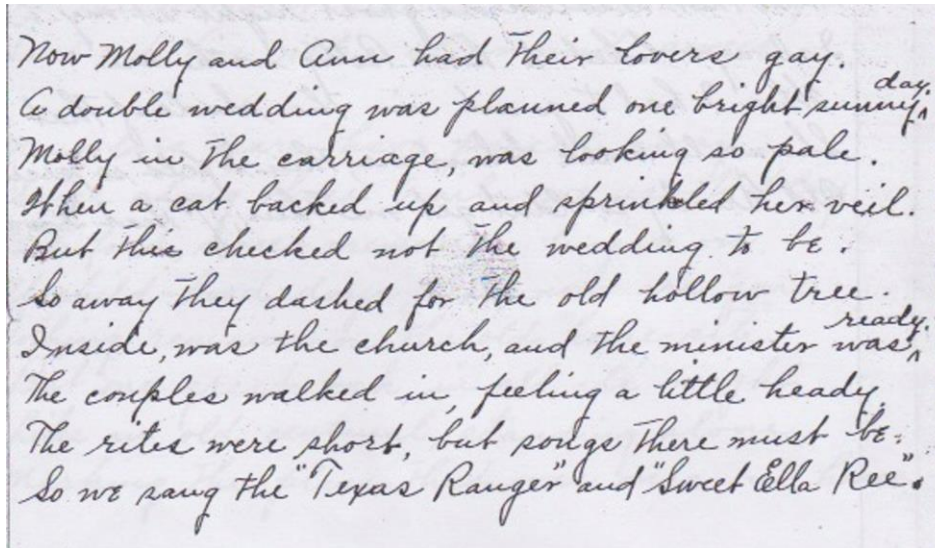 Now Molly and Ann had their lovers gay.
A double wedding was planned one bright sunny day.
Molly in the carriage, was looking so pale.
When a cat backed up and sprinkled her veil.
But this checked not the wedding to be.
So away they dashed for the old hollow tree.
Inside, was the church, and the minister was ready.
The couples walked in, feeling a little heady.
The rites were short, but songs there must be.
So we sang the "Texas Ranger" and "Sweet Ella Ree".